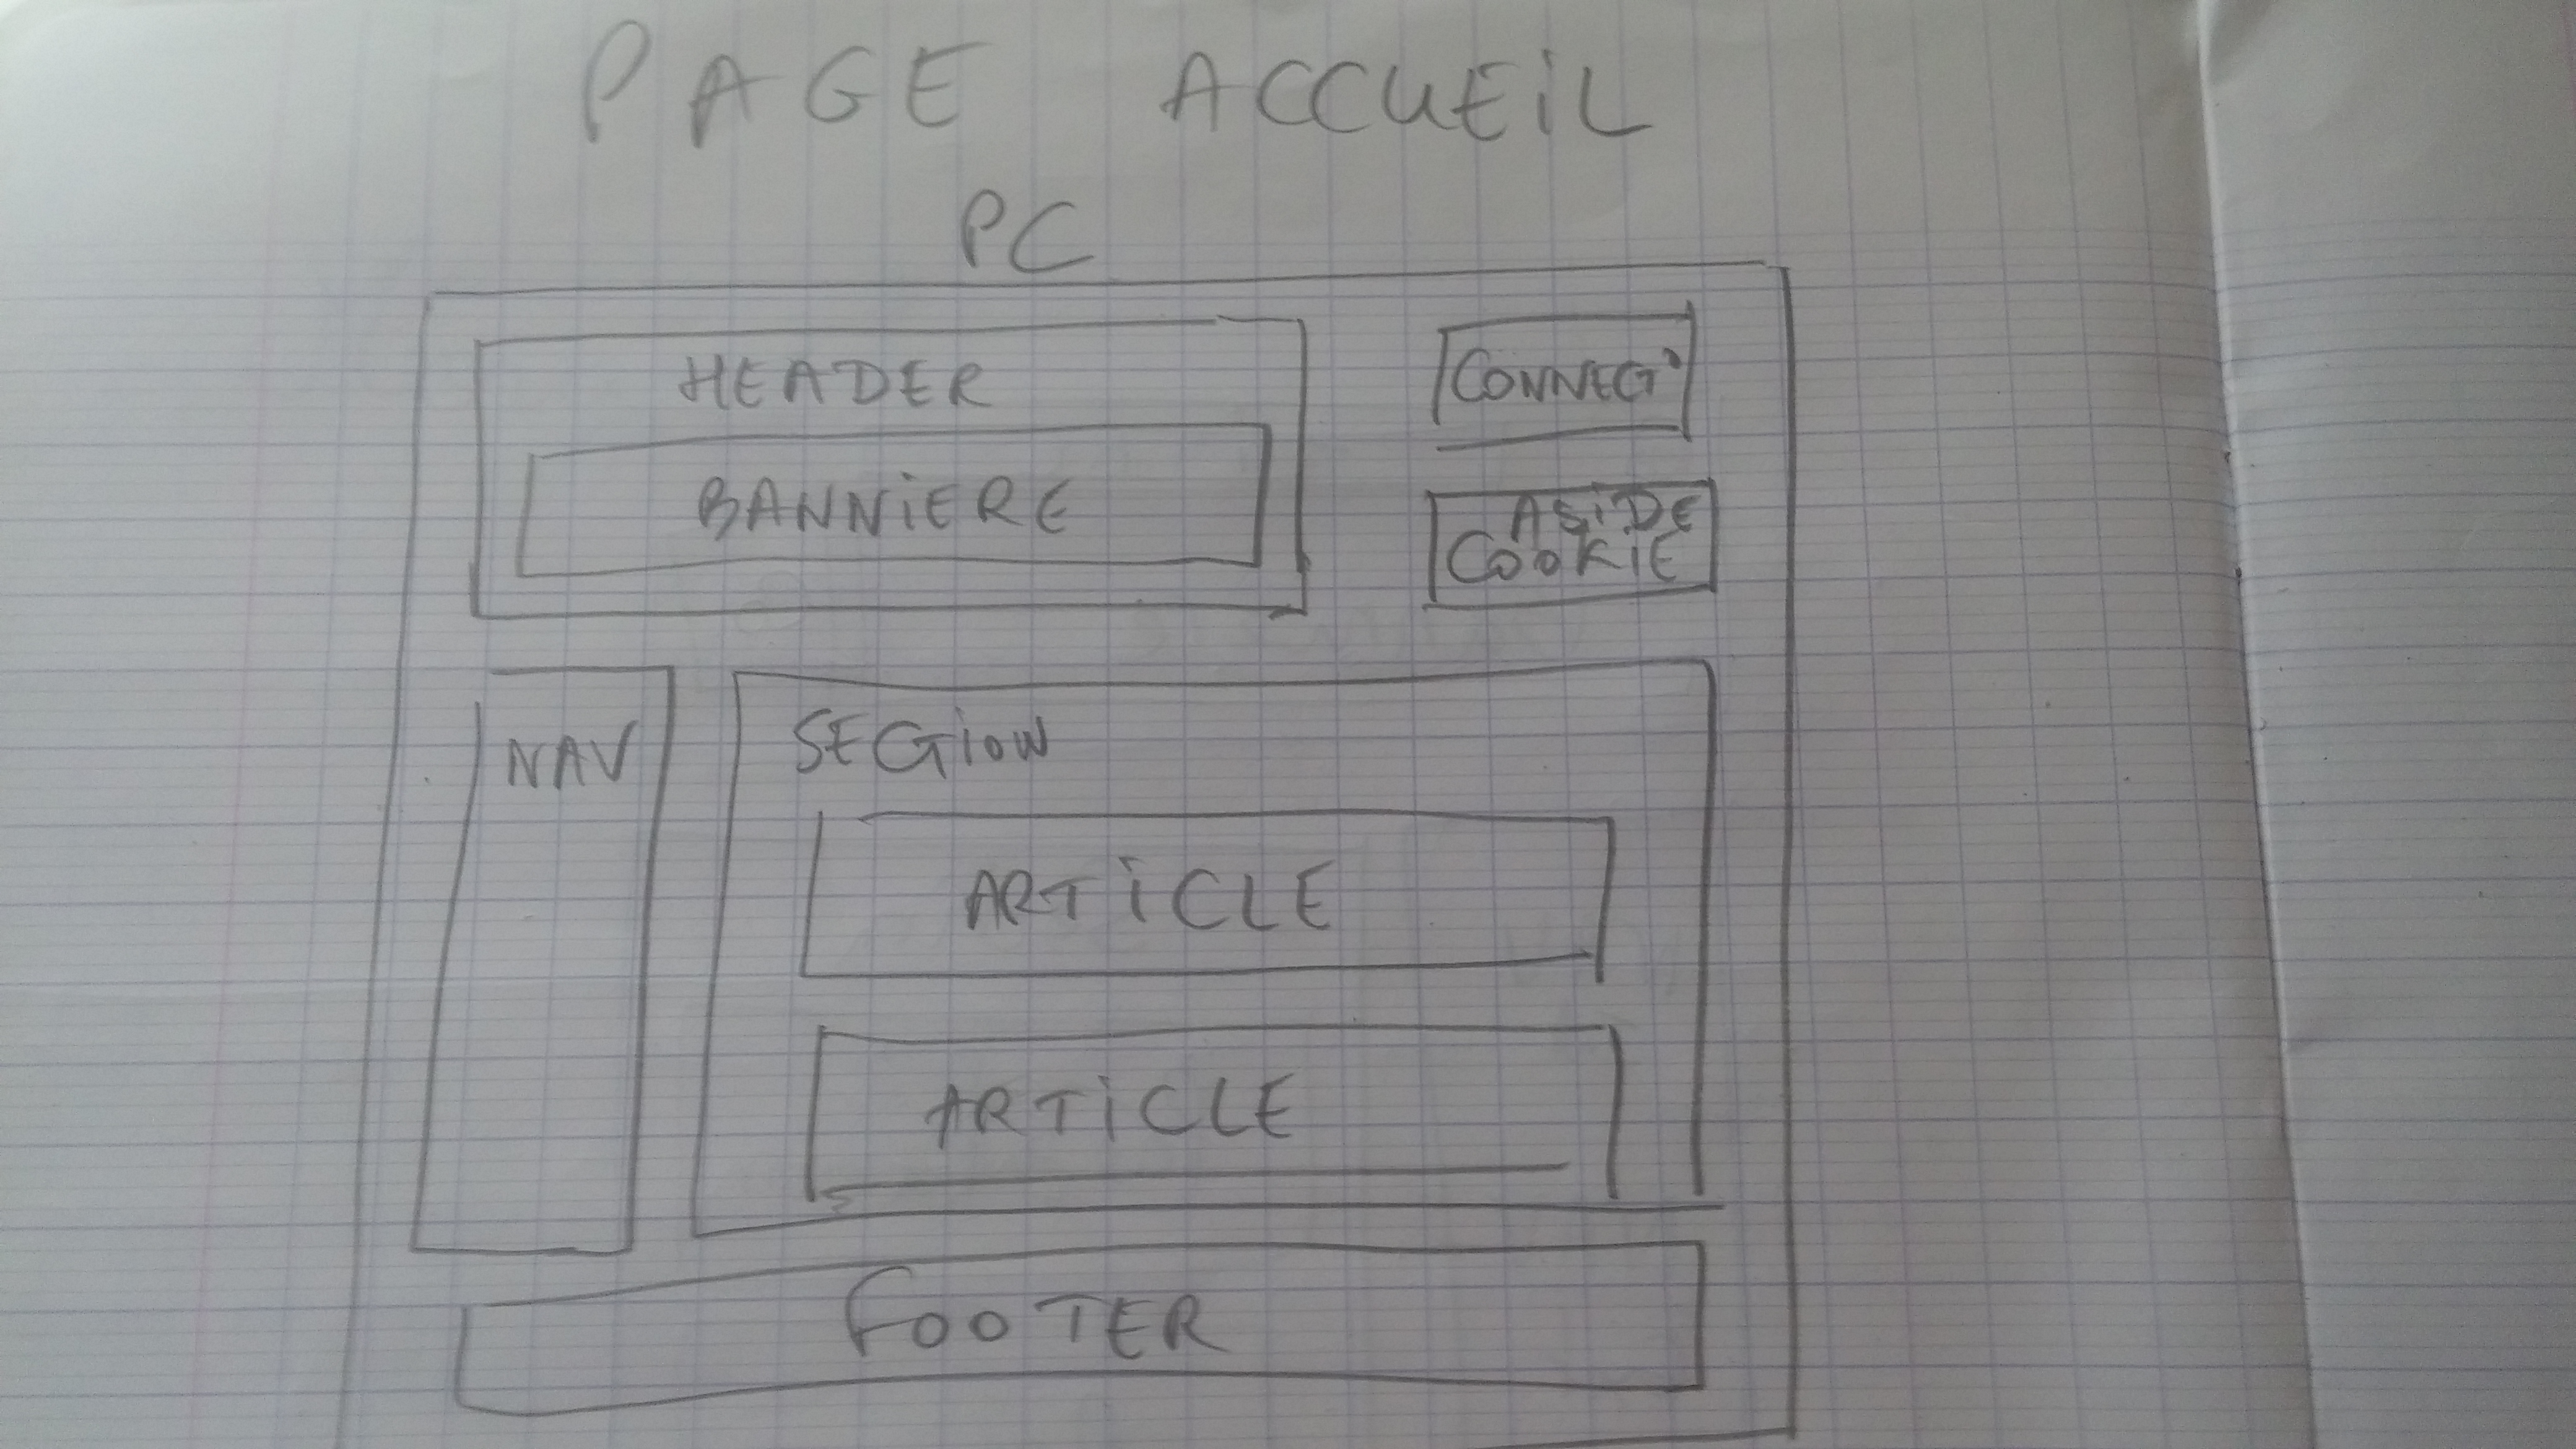 PAGE ACCUEIL
PC
HEADER
CONNECT°
BANNiERE
ASiDE
COOKiE
NAV
SECTiON
ARTiCLE
ARTiCLE
FOOTER